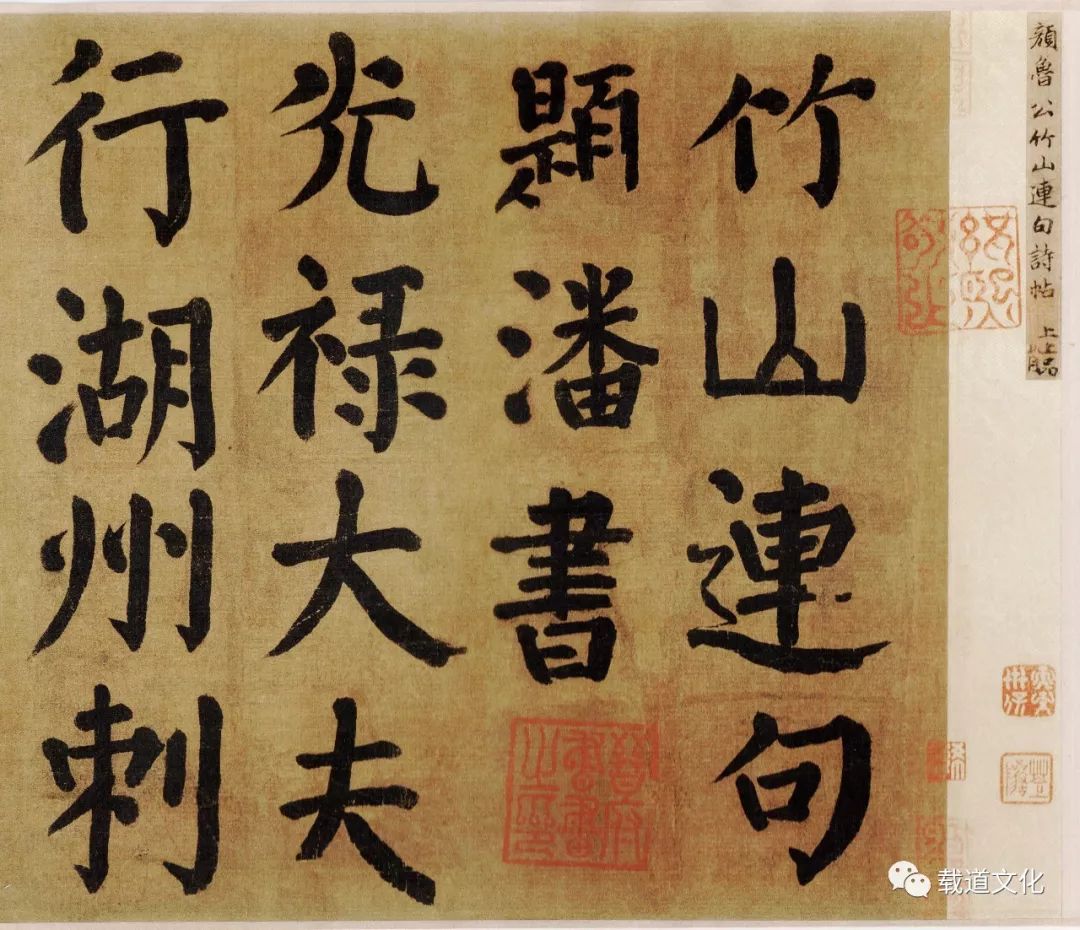 顔魯公竹山連句詩帖 上上
竹山連句
題潘書
晉府書畫之印
光禄大夫
行湖州刺
载道文化